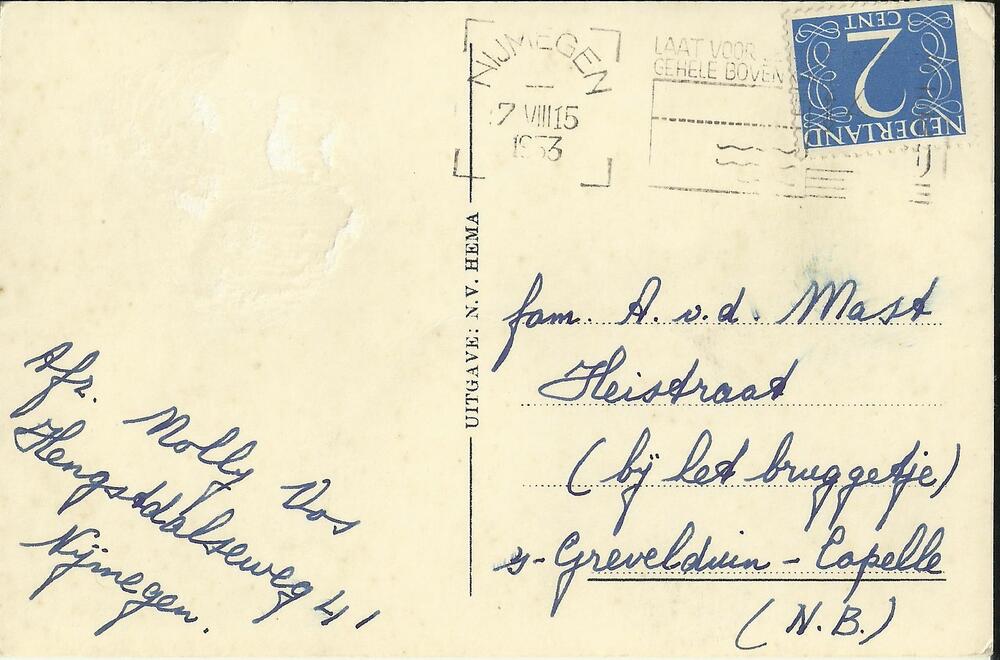 NIJMEGEN
7 VIII 15
1953
LAAT VOOR
GEHELE BOVEN
NEDERLAND
2
CENT
UITGAVE: N.V. HEMA
fam. A. v.d. Mast
Heistraat
(bij het bruggetje)
s-Grevelduin - Capelle
(N.B.)
Afz.
Molly Vos
Hengstdalseweg 41
Nijmegen.